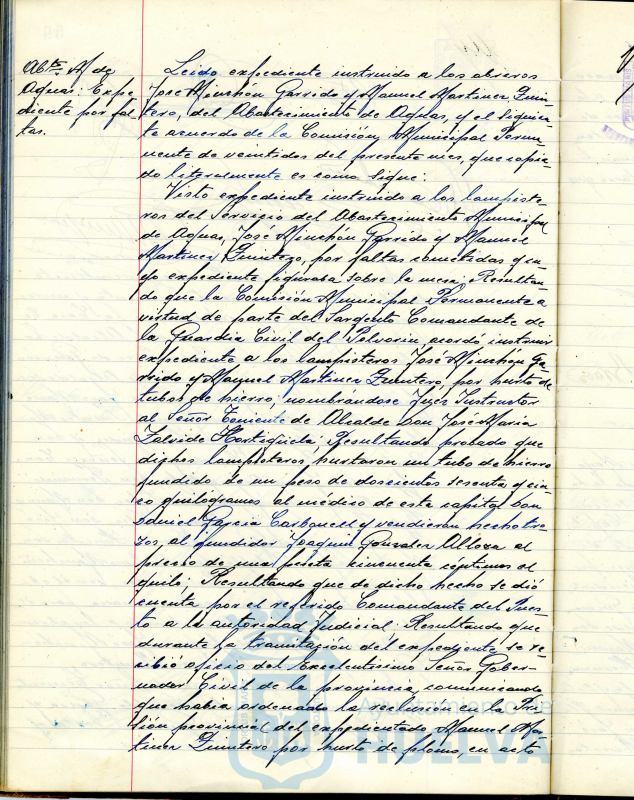 Abts. M de
Aguas: Expe
diente por fal
tas.
Leido expediente instruido a los obreros
José Minchón Garrido y Manuel Martinez Quin-
tero, del Abastecimiento de Aguas, y el siguien-
te acuerdo de la Comisión Municipal Perma-
nente de veintidos del presente mes, que copia-
do literalmente es como sigue:
Visto expediente instruido a los lampiste-
ros del Servicio del Abastecimiento Municipal
de Aguas, José Minchón Garrido y Manuel
Martinez Quintero, por faltas cometidas y cu-
yo expediente figuraba sobre la mesa; Resultan-
do que la Comisión Municipal Permanente a
virtud de parte del Sargento Comandante de
la Guardia Civil del Polvorin, acordó instruir
expediente a los lampisteros José Minchón Ga-
rrido y Manuel Martinez Quintero, por hurto de
tubos de hierro, nombrándose Juez Instructor
al Señor Teniente de Alcalde Don José Maria
Zalvide Hortegüela; Resultando probado que
dichos lampisteros, hurtaron un tubo de hierro
fundido de un peso de doscientos sesenta y cin-
co quilógramos al médico de esta capital Don
Daniel Garcia Carbonell y vendieron hecho tro-
zos, al fundidor Joaquin Gonzalez Alloza al
precio de una peseta cincuenta céntimos el
quilo; Resultando que de dicho hecho se dió
cuenta por el referido Comandante del Pues-
to a la autoridad Judicial: Resultando que
durante la tramitación del expediente se re-
cibió oficio del Excelentisimo Señor Gober-
nador Civil de la provincia comunicando
que habia ordenado la reclusión en la Pri-
sión provincial del expedientado Manuel Mar-
tinez Quintero por hurto de plomo, en acto
Ayuntamiento de
HUELVA